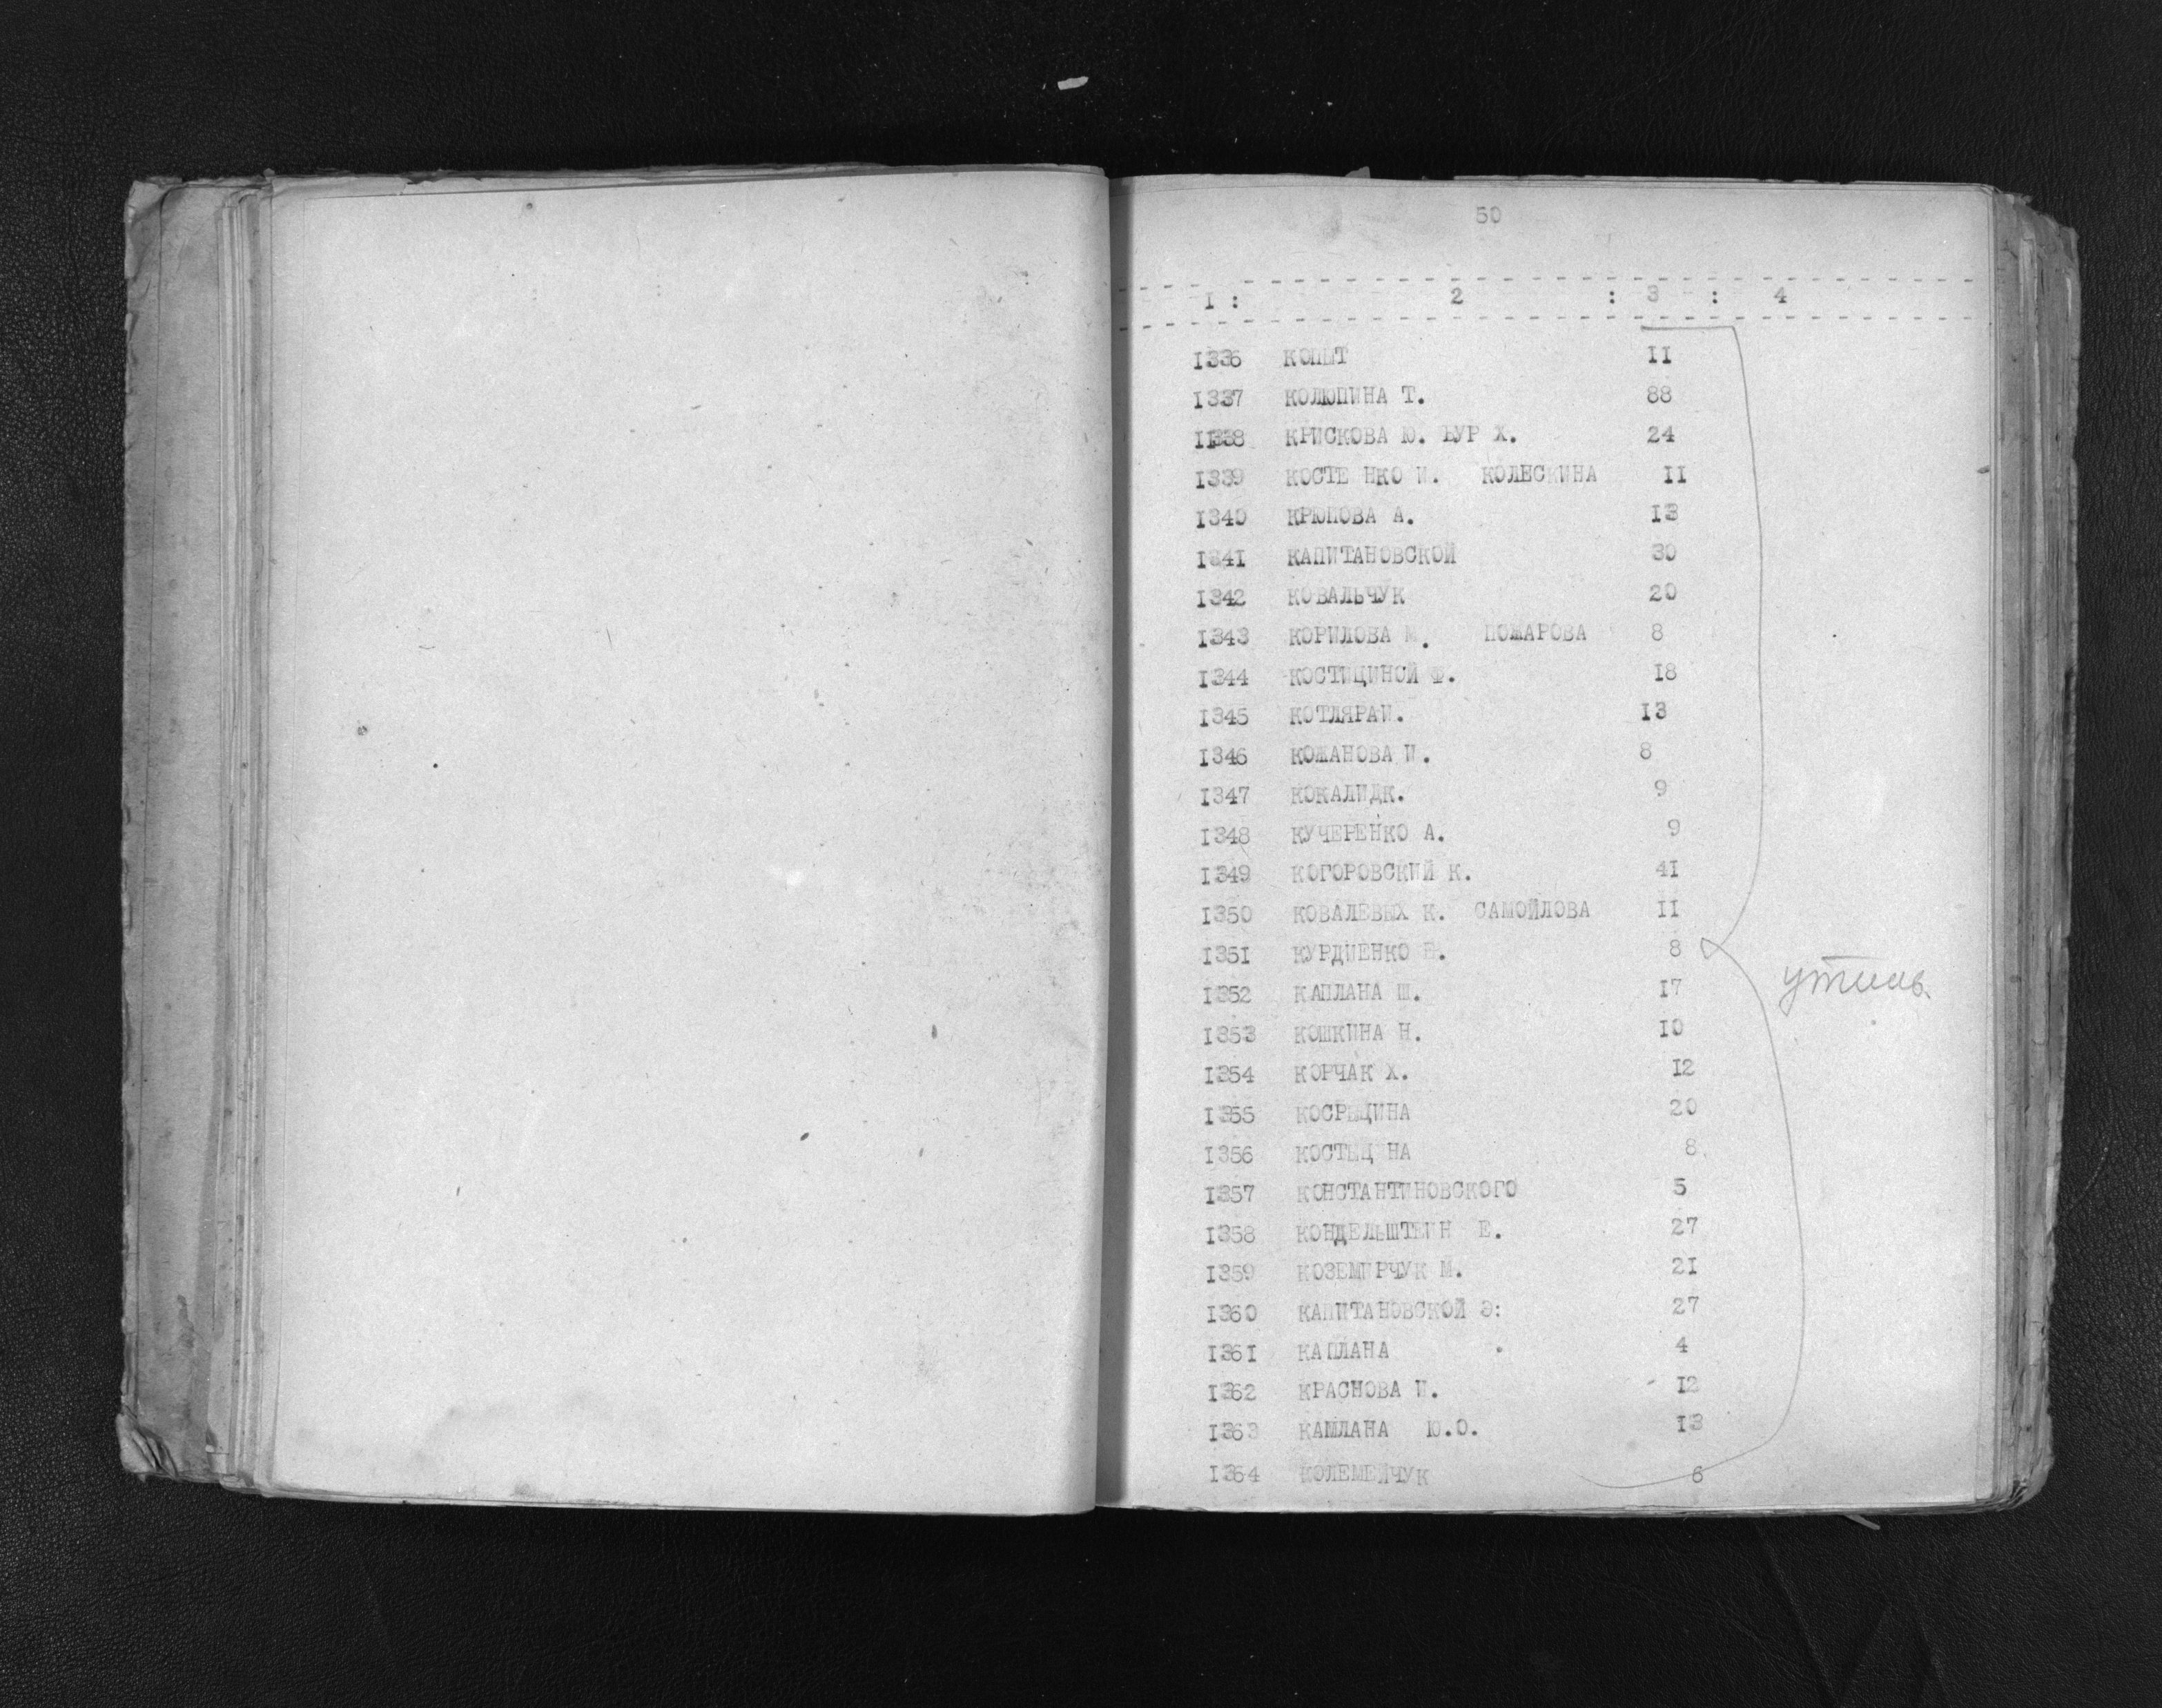 50
1 : 2 : 3 : 4
1336 КОПЫТ 11
1337 КОЛЮПИНА Т. 88
1338 КРИСКОВА Ю. БУР Х. 24
1339 КОСТЕ НКО И. КОЛЕСКИНА 11
1340 КРЮПОВА А. 13
1341 КАПИТАНОВСКОЙ 30
1342 КОВАЛЬЧУК 20
1343 КОРИЛОВА М. ПОЖАРОВА 8
1344 КОСТИЦИНОЙ Ф. 18
1345 КОТЛЯРАИ. 13
1346 КОЖАНОВА И. 8
1347 КОКАЛИДК. 9
1348 КУЧЕРЕНКО А. 9
1349 КОГОРОВСКИЙ К. 41
1350 КОВАЛЕВЫХ К. САМОЙЛОВА 11
1351 КУРДИЕНКО 8
1352 КАПЛАНА Ш. 17
утиль
1353 КОШКИНА Н. 10
1354 КОРЧАК Х. 12
1355 КОСРЫЦИНА 20
1356 КОСТЫЦ НА 8
1357 КОНСТАНТИНОВСКОГО 5
1358 КОНДЕЛЬШТЕИН Е. 27
1359 КОЗЕМИРЧУК М. 21
1360 КАПИТАНОВСКОЙ Э: 27
1361 КАПЛАНА . 4
1362 КРАСНОВА И. 12
1363 КАМЛАНА Ю.О. 13
1364 КОЛЕМЕЙЧУК 6